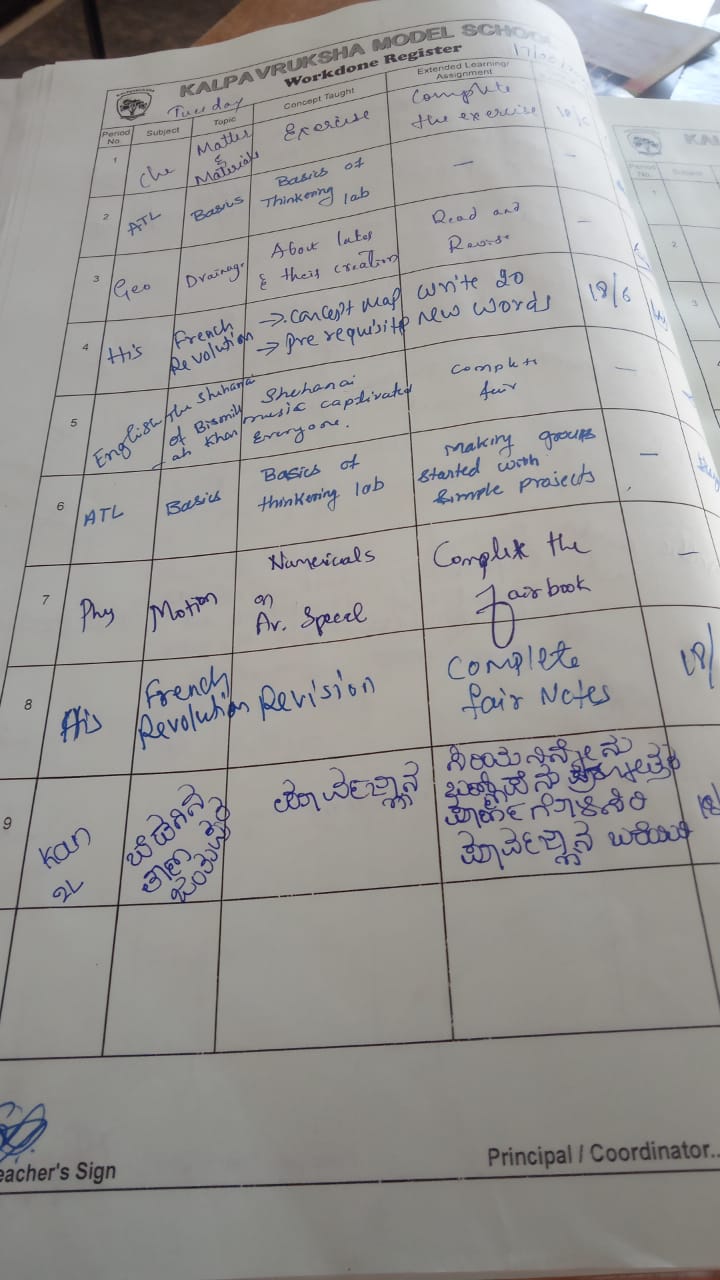 KALPAVRUKSHA MODEL SCHOOL
Workdone Register
Tuesday
Period No.
Subject
Topic
Concept Taught
Extended Learning/ Assignment
1
Che
Matter & Materials
Exercise
Complete the exercise
2
ATL
Basics
Basics of Thinkering lab
—
—
3
Geo
Drainage
About lakes & their creation
Read and Revise
—
4
His
French Revolution
→ concept map
→ Pre requisite
write 20 new words
18/6
5
English
The Shehnai of Bismillah Khan
Shehanai music captivated everyone.
Complete fair
—
6
ATL
Basics
Basics of thinkering lab
Making groups started with simple projects
—
7
Phy
Motion
Numericals on Av. Speed
Complete the fairbook
—
8
His
French Revolution
Revision
Complete fair Notes
18/
9
Kan
2L
ಪೂರ್ವಜ್ಞಾನ
ಪೂರ್ವಜ್ಞಾನ
18/
Teacher's Sign
Principal / Coordinator..